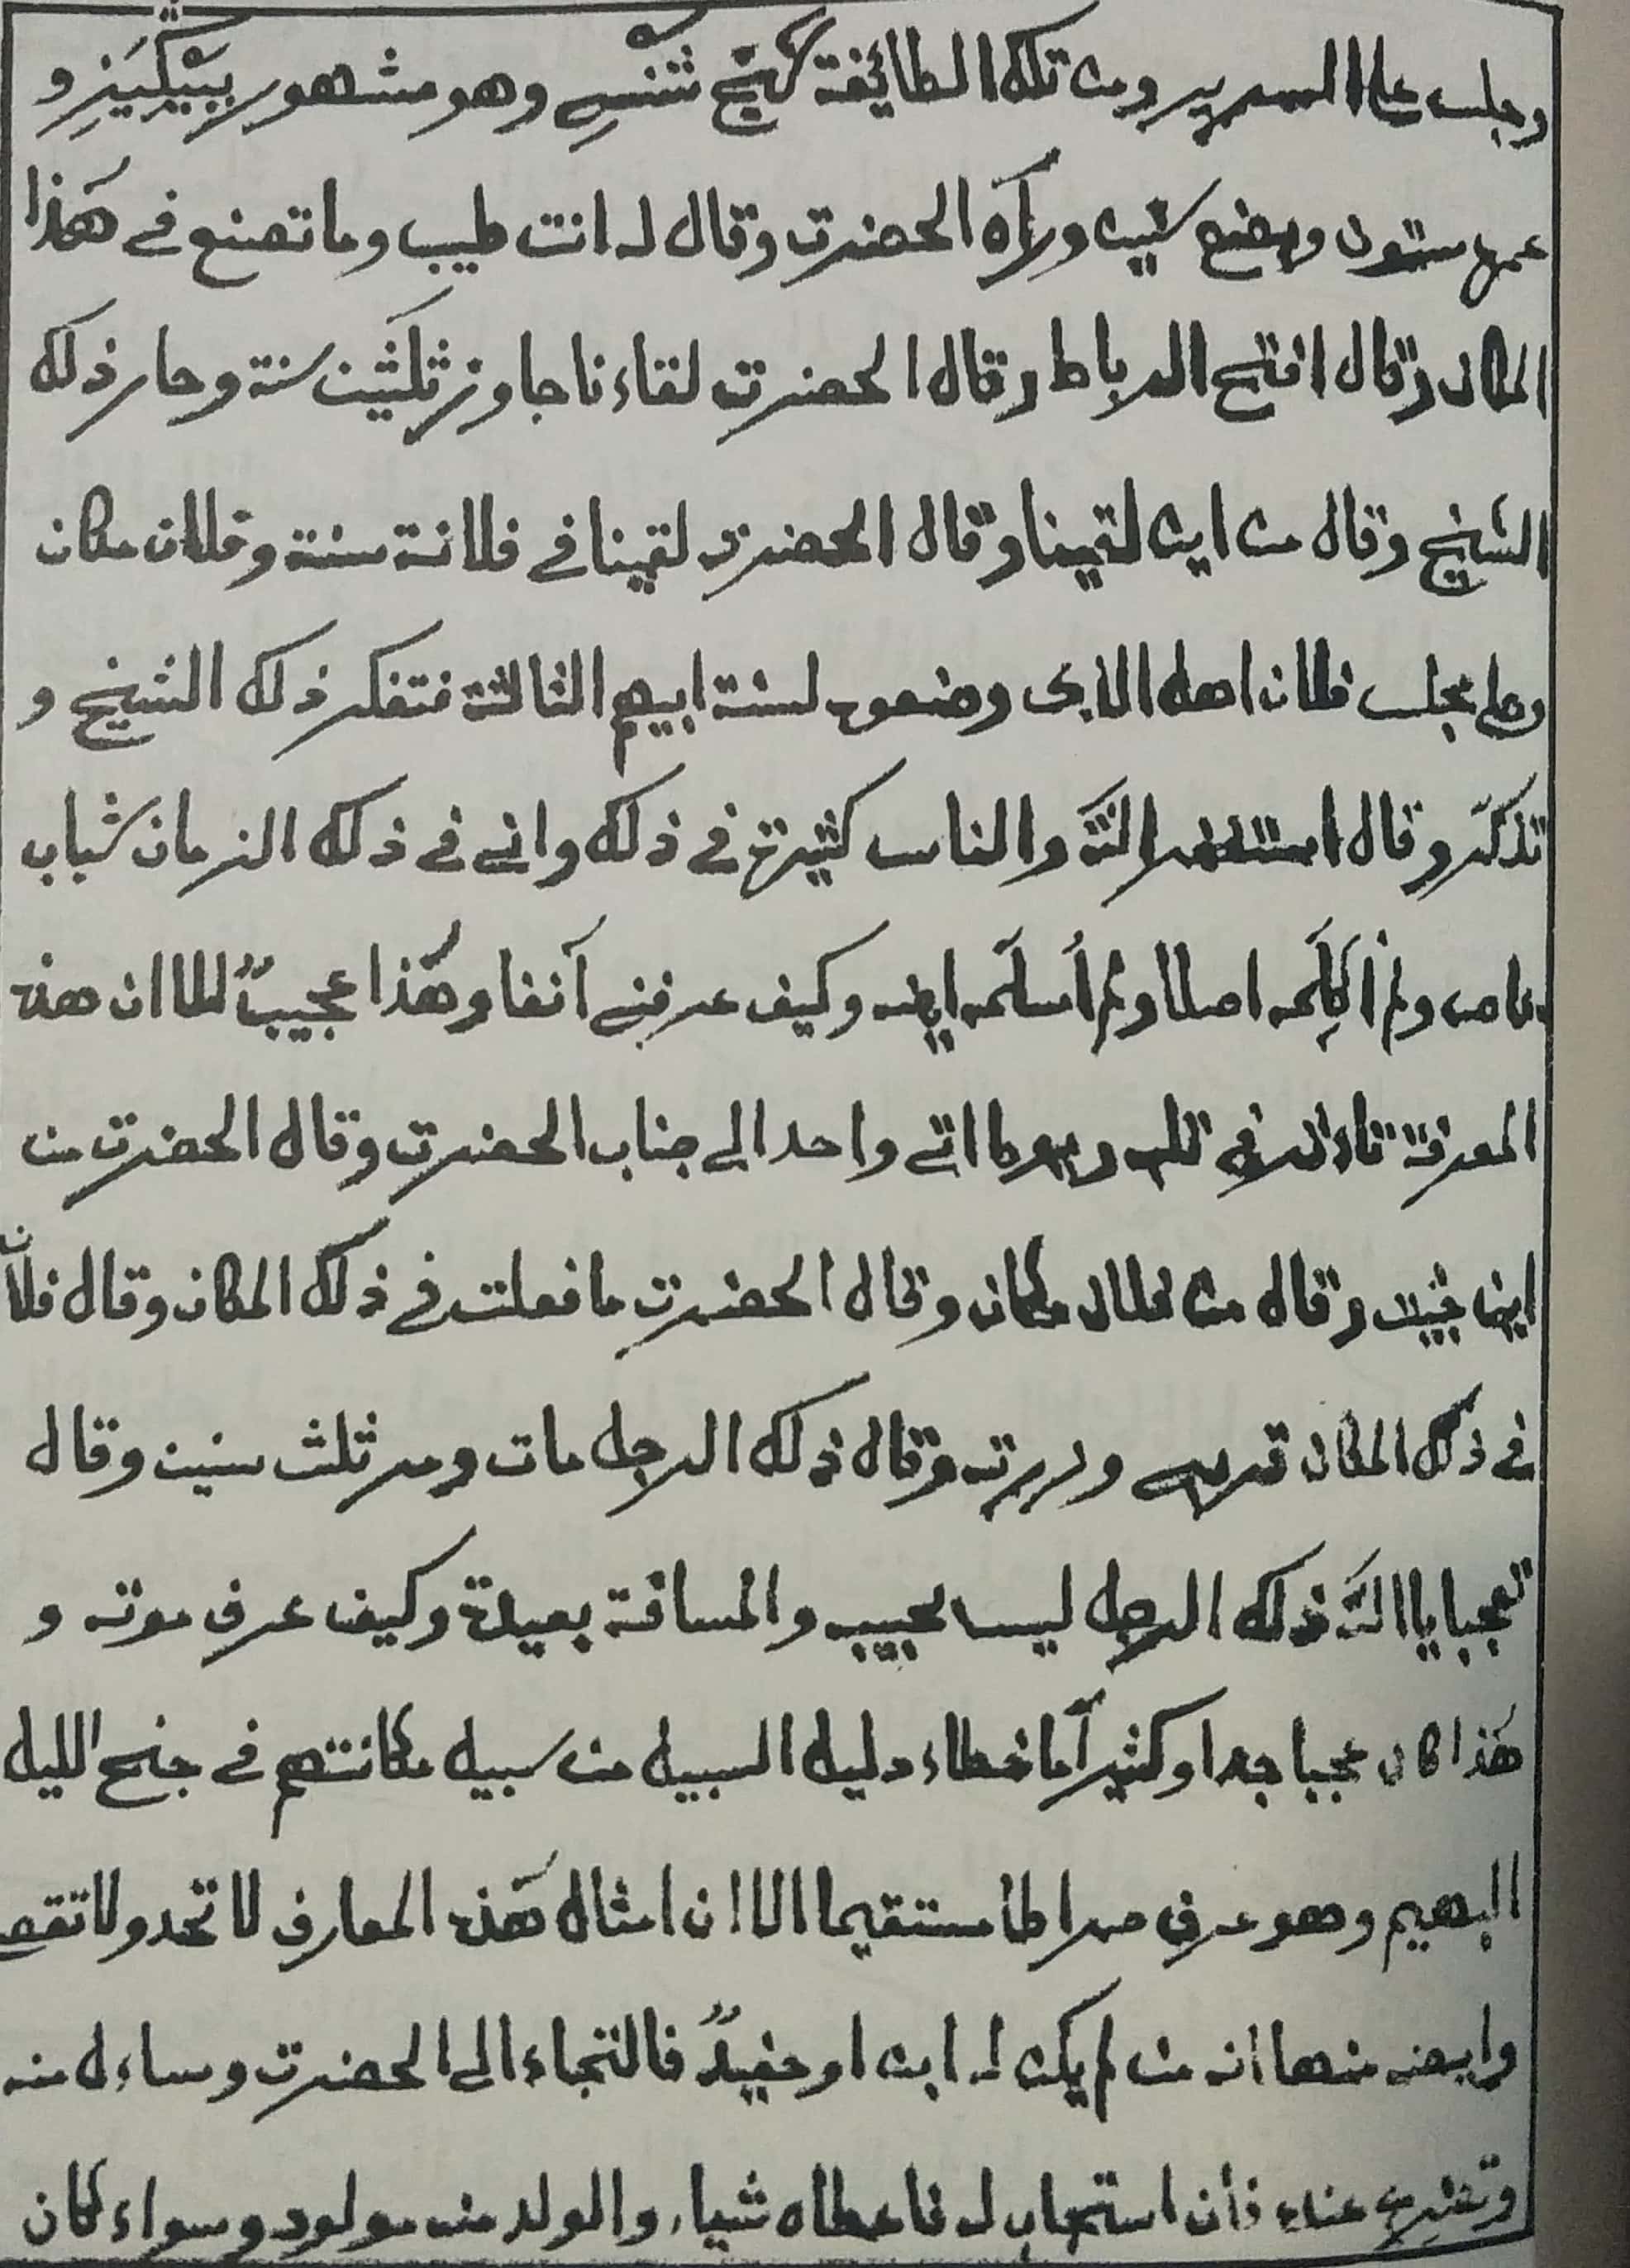 وجلس على السرير ومن تلك الطائفة شيخ وهو مشهور و
عمره ستون وبضع سنين ورآه الحضرت وقال له انت طيب وما تصنع في هٰذا
المكان وقال افتح الرباط وقال الحضرت لقاءنا جاوز ثلثين سنة وحار ذلك
الشيخ وقال من اين لقينا وقال الحضرت لقينا في فلانة سنة وفلان مكان
وعلى مجلس فلان اهل الذى وضعوه لسنة ابيهم الثالثة فتفكر ذلك الشيخ و
تذكّر وقال استغفر اللّٰه والناس كثيرة في ذلك واني في ذلك الزمان شباب
ولم أكلّمه اصلا ولم أسلّمه ايضا وكيف عرفني آنفا وهٰذا عجيبٌ الا ان هذه
المعرفة واحد الى جناب الحضرت وقال الحضرت من
اين جئت وقال من فلان مكان وقال الحضرت ما فعلت في ذلك المكان وقال فلانٌ
في ذلك المكان وقال ذلك الرجل مات ومر ثلث سنين وقال
تعجبا يا اللّٰه ذلك الرجل ليس بحبيب والمسافة بعيدة وكيف عرف موته و
هٰذا كان عجبا جدا وكثيرا ما خطاء دليل السبيل من سبيل مكانتهم في جنح الليل
البهيم وهو عرف صراطا مستقيما الا ان امثال هٰذه المعارف لا تحد ولا تقص
وايضا منها انه من لم يكن له ابن او حفيدٌ فالتجاء الى الحضرت وساءل منه
عنده فأن استجاب له فاعطاه شياء والولد منه مولود وسواء كان